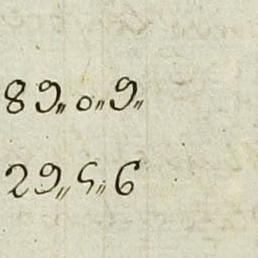 89〃0〃9〃
29〃5〃6